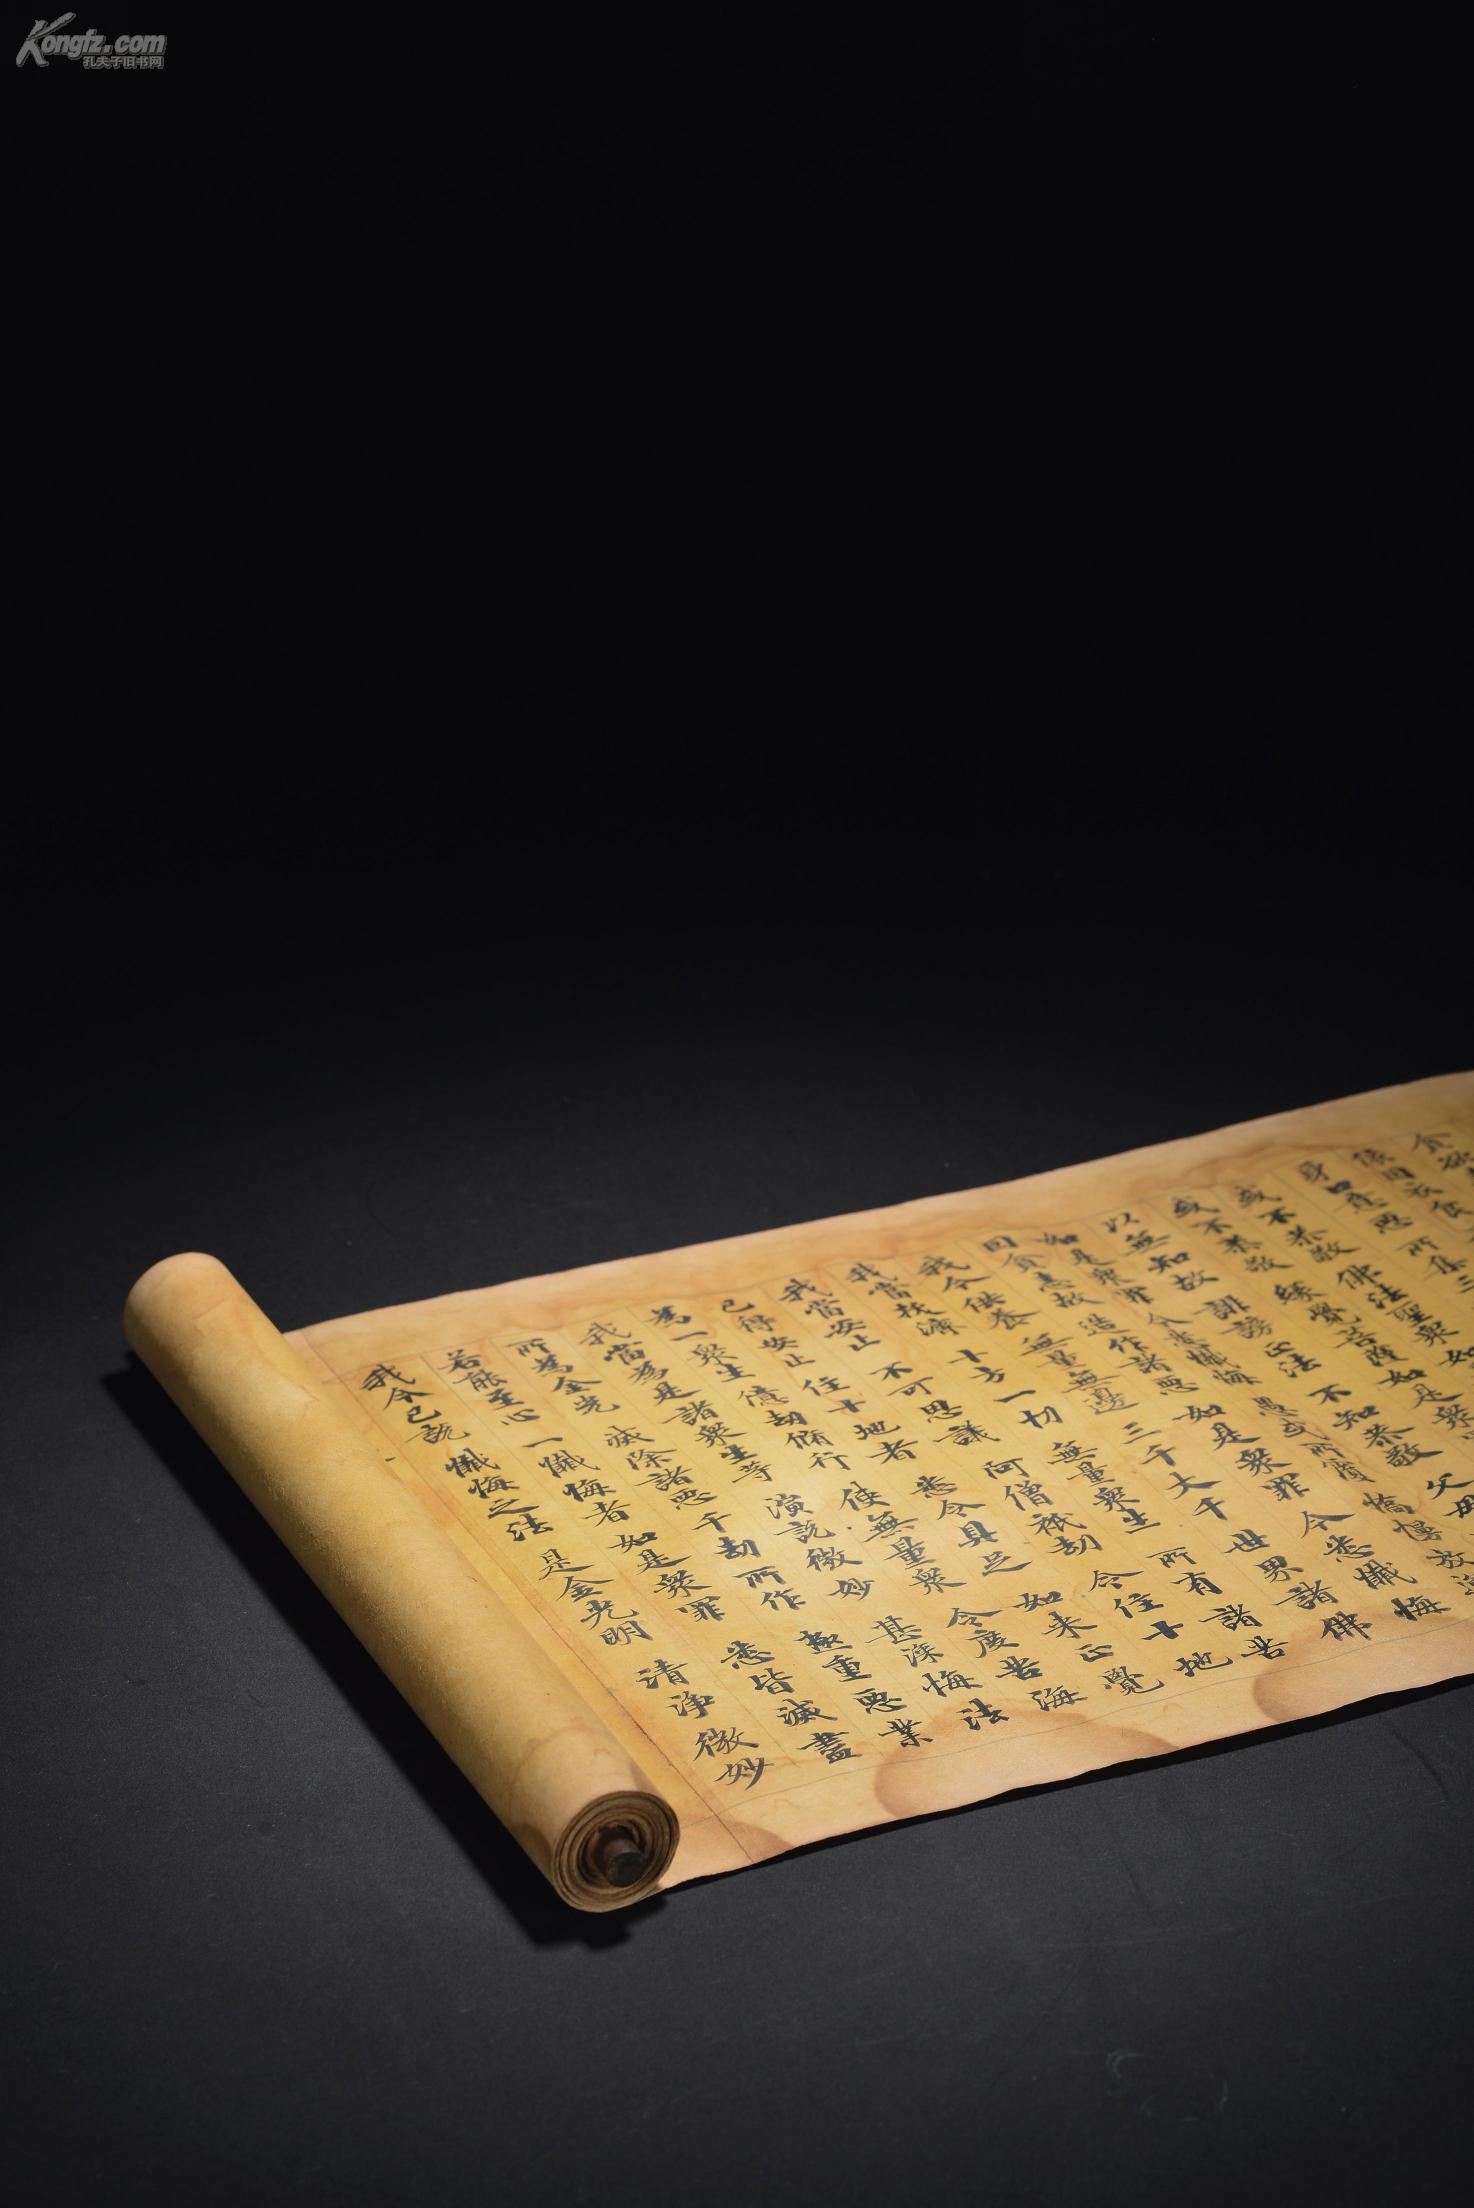 Kongfz.com
孔夫子旧书网
貪欲
依因衣食
身口意惡 所集三
或不恭敬 佛法聖眾 如
或不恭敬 緣覺菩薩 如是眾
以無知故 誹謗正法 不知恭敬 父母
如是眾罪 今悉懺悔 愚惑所覆 憍慢放逸
因貪恚故 造作諸惡 如是眾罪 今悉懺悔
我今供養 無量無邊 三千大千 世界諸佛
我當拔濟 十方一切 無量眾生 所有諸苦
我當安止 不可思議 阿僧祇劫 令住十地
已得安止 住十地者 悉令具足 如来正覺
為一眾生 億劫脩行 使無量眾 令度苦海
我當為是 諸眾生等 演說微妙 甚深悔法
所為金光 滅除諸惡 千劫所作 極重惡業
若能至心 一懺悔者 如是眾罪 悉皆滅盡
我今已說 懺悔之法 是金光明 清淨微妙